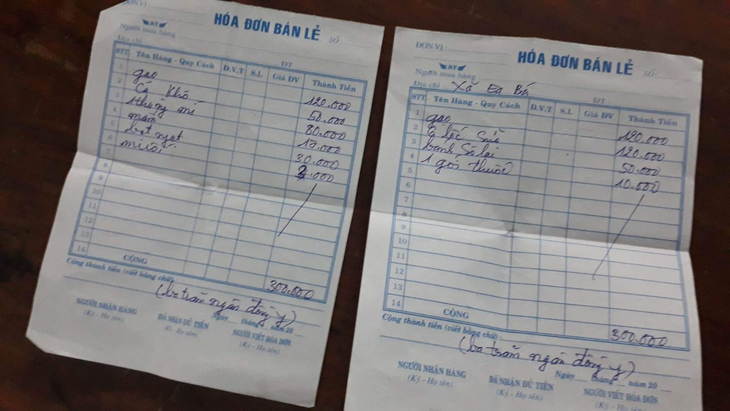 HÓA ĐƠN BÁN LẺ SỐ:
ĐƠN VỊ:
Người mua hàng
Địa chỉ ĐT
STT Tên Hàng - Quy Cách Đ.V.T S.L Giá ĐV Thành Tiền
1 gạo 120.000
2 Cá khô 50.000
3 thùng mì 80.000
4 mắm 17.000
5 bột ngọt 30.000
6 muối 3.000
7
8
9
10
11
12
13
14
CỘNG 300.000
Cộng thành tiền (viết bằng chữ): (ba trăm ngàn đồng y)
Ngày tháng năm 20
NGƯỜI NHẬN HÀNG ĐÃ NHẬN ĐỦ TIỀN NGƯỜI VIẾT HÓA ĐƠN
(Ký - Họ tên) (Ký - Họ tên)
HÓA ĐƠN BÁN LẺ SỐ
ĐƠN VỊ:
Người mua hàng
Địa chỉ Xã Ea Bá ĐT
STT Tên Hàng - Quy Cách Đ.V.T S.L Giá ĐV Thành Tiền
1 gạo 120.000
2 lốc 120.000
3 bánh 50.000
4 1 gói thuốc 10.000
5
6
7
8
9
10
11
12
13
14
CỘNG 300.000
Cộng thành tiền (viết bằng chữ): (ba trăm ngàn đồng y)
Ngày tháng năm 20
NGƯỜI NHẬN HÀNG ĐÃ NHẬN ĐỦ TIỀN NGƯỜI VIẾT HÓA ĐƠN
(Ký - Họ tên) (Ký - Họ tên)